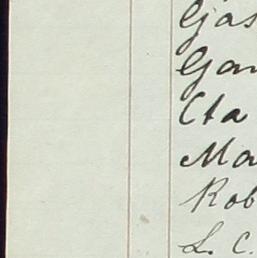 Gas
Gan
Cta
Ma
Rob
L. C.